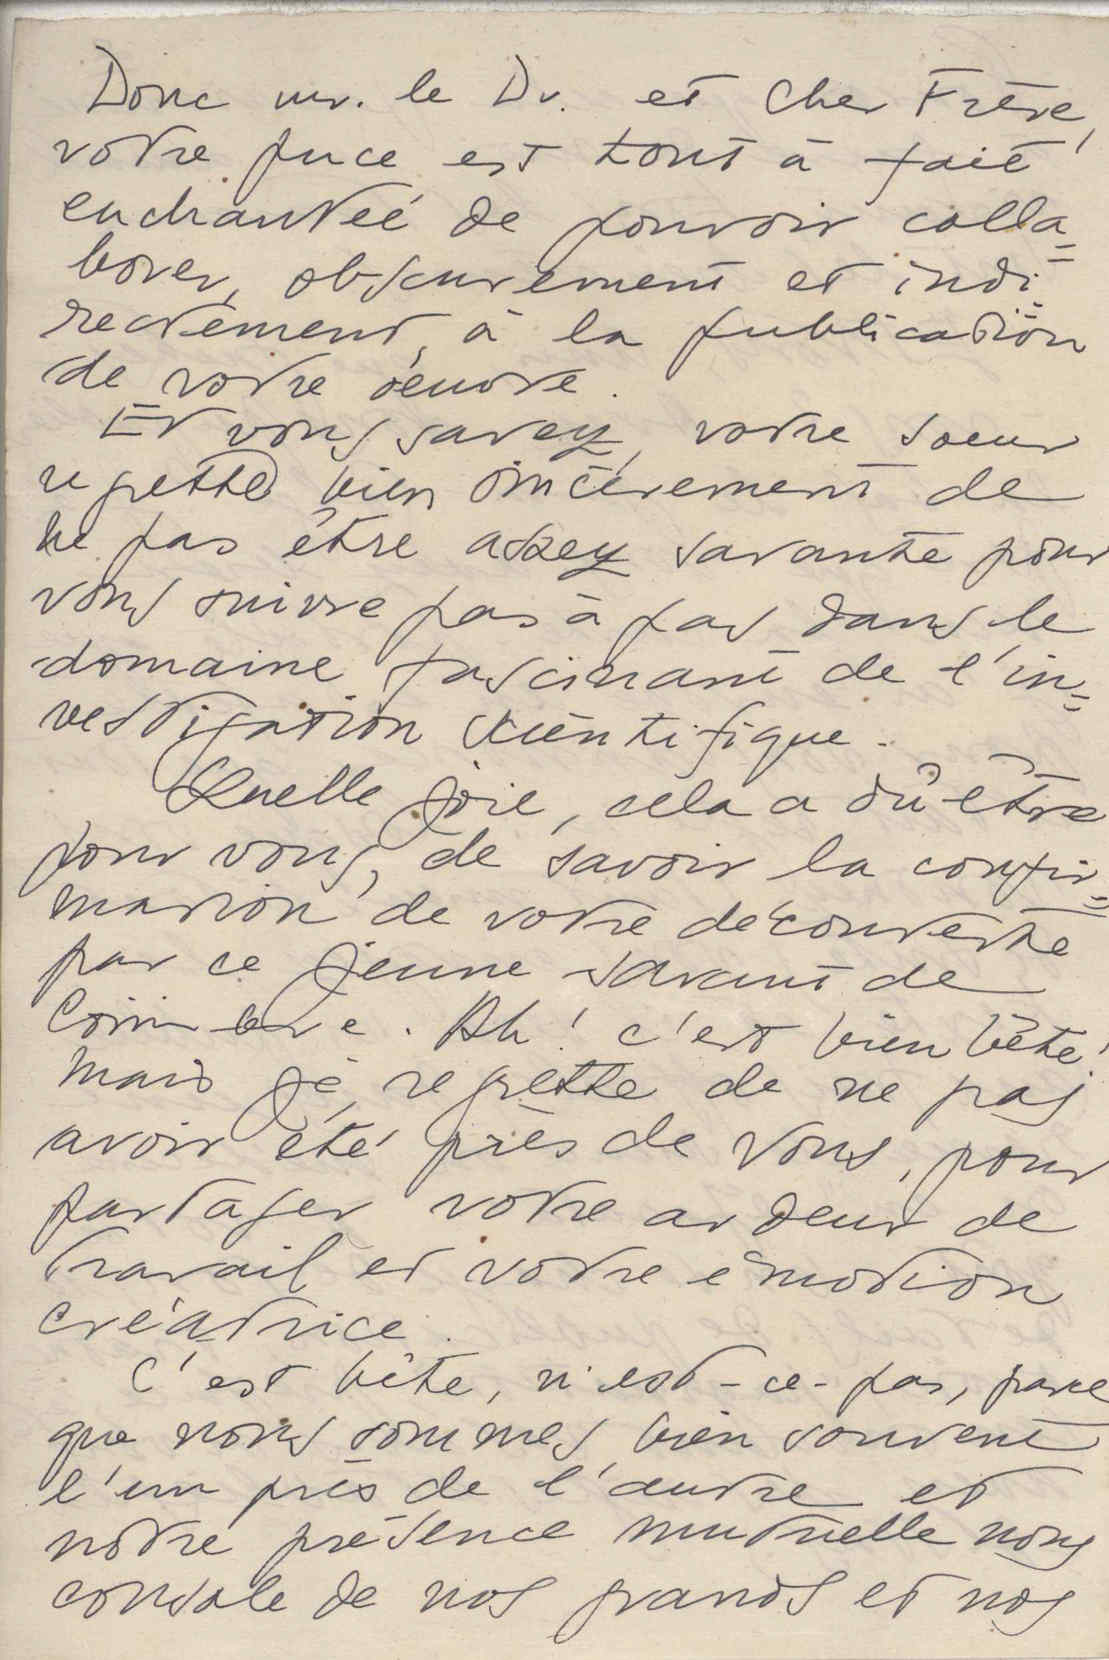 Donc mr. le Dr. et Cher Frère,
votre puce est tout à fait
enchanteé de pouvoir colla=
borer, obscurement et indi=
rectement, à la publication
de votre oeuvre.
Et vous savez, votre soeur
regrette bien sincèrement de
ne pas être assez savante pour
vous suivre pas à pas dans le
domaine fascinant de l'in=
vestigation scientifique.
Quelle joie, cela a dû être
pour vous, de savoir la confir=
mation de votre découverte
par ce jeune savant de
Coimbre. Ah! c'est bien bête!
mais je regrette de ne pas
avoir été près de vous, pour
partager votre ardeur de
travail et votre émotion
créatrice.
C'est bête, n'est-ce-pas, parce
que nous sommes bien souvent
l'un près de l'autre et
notre présence mutuelle nous
console de nos grands et nos